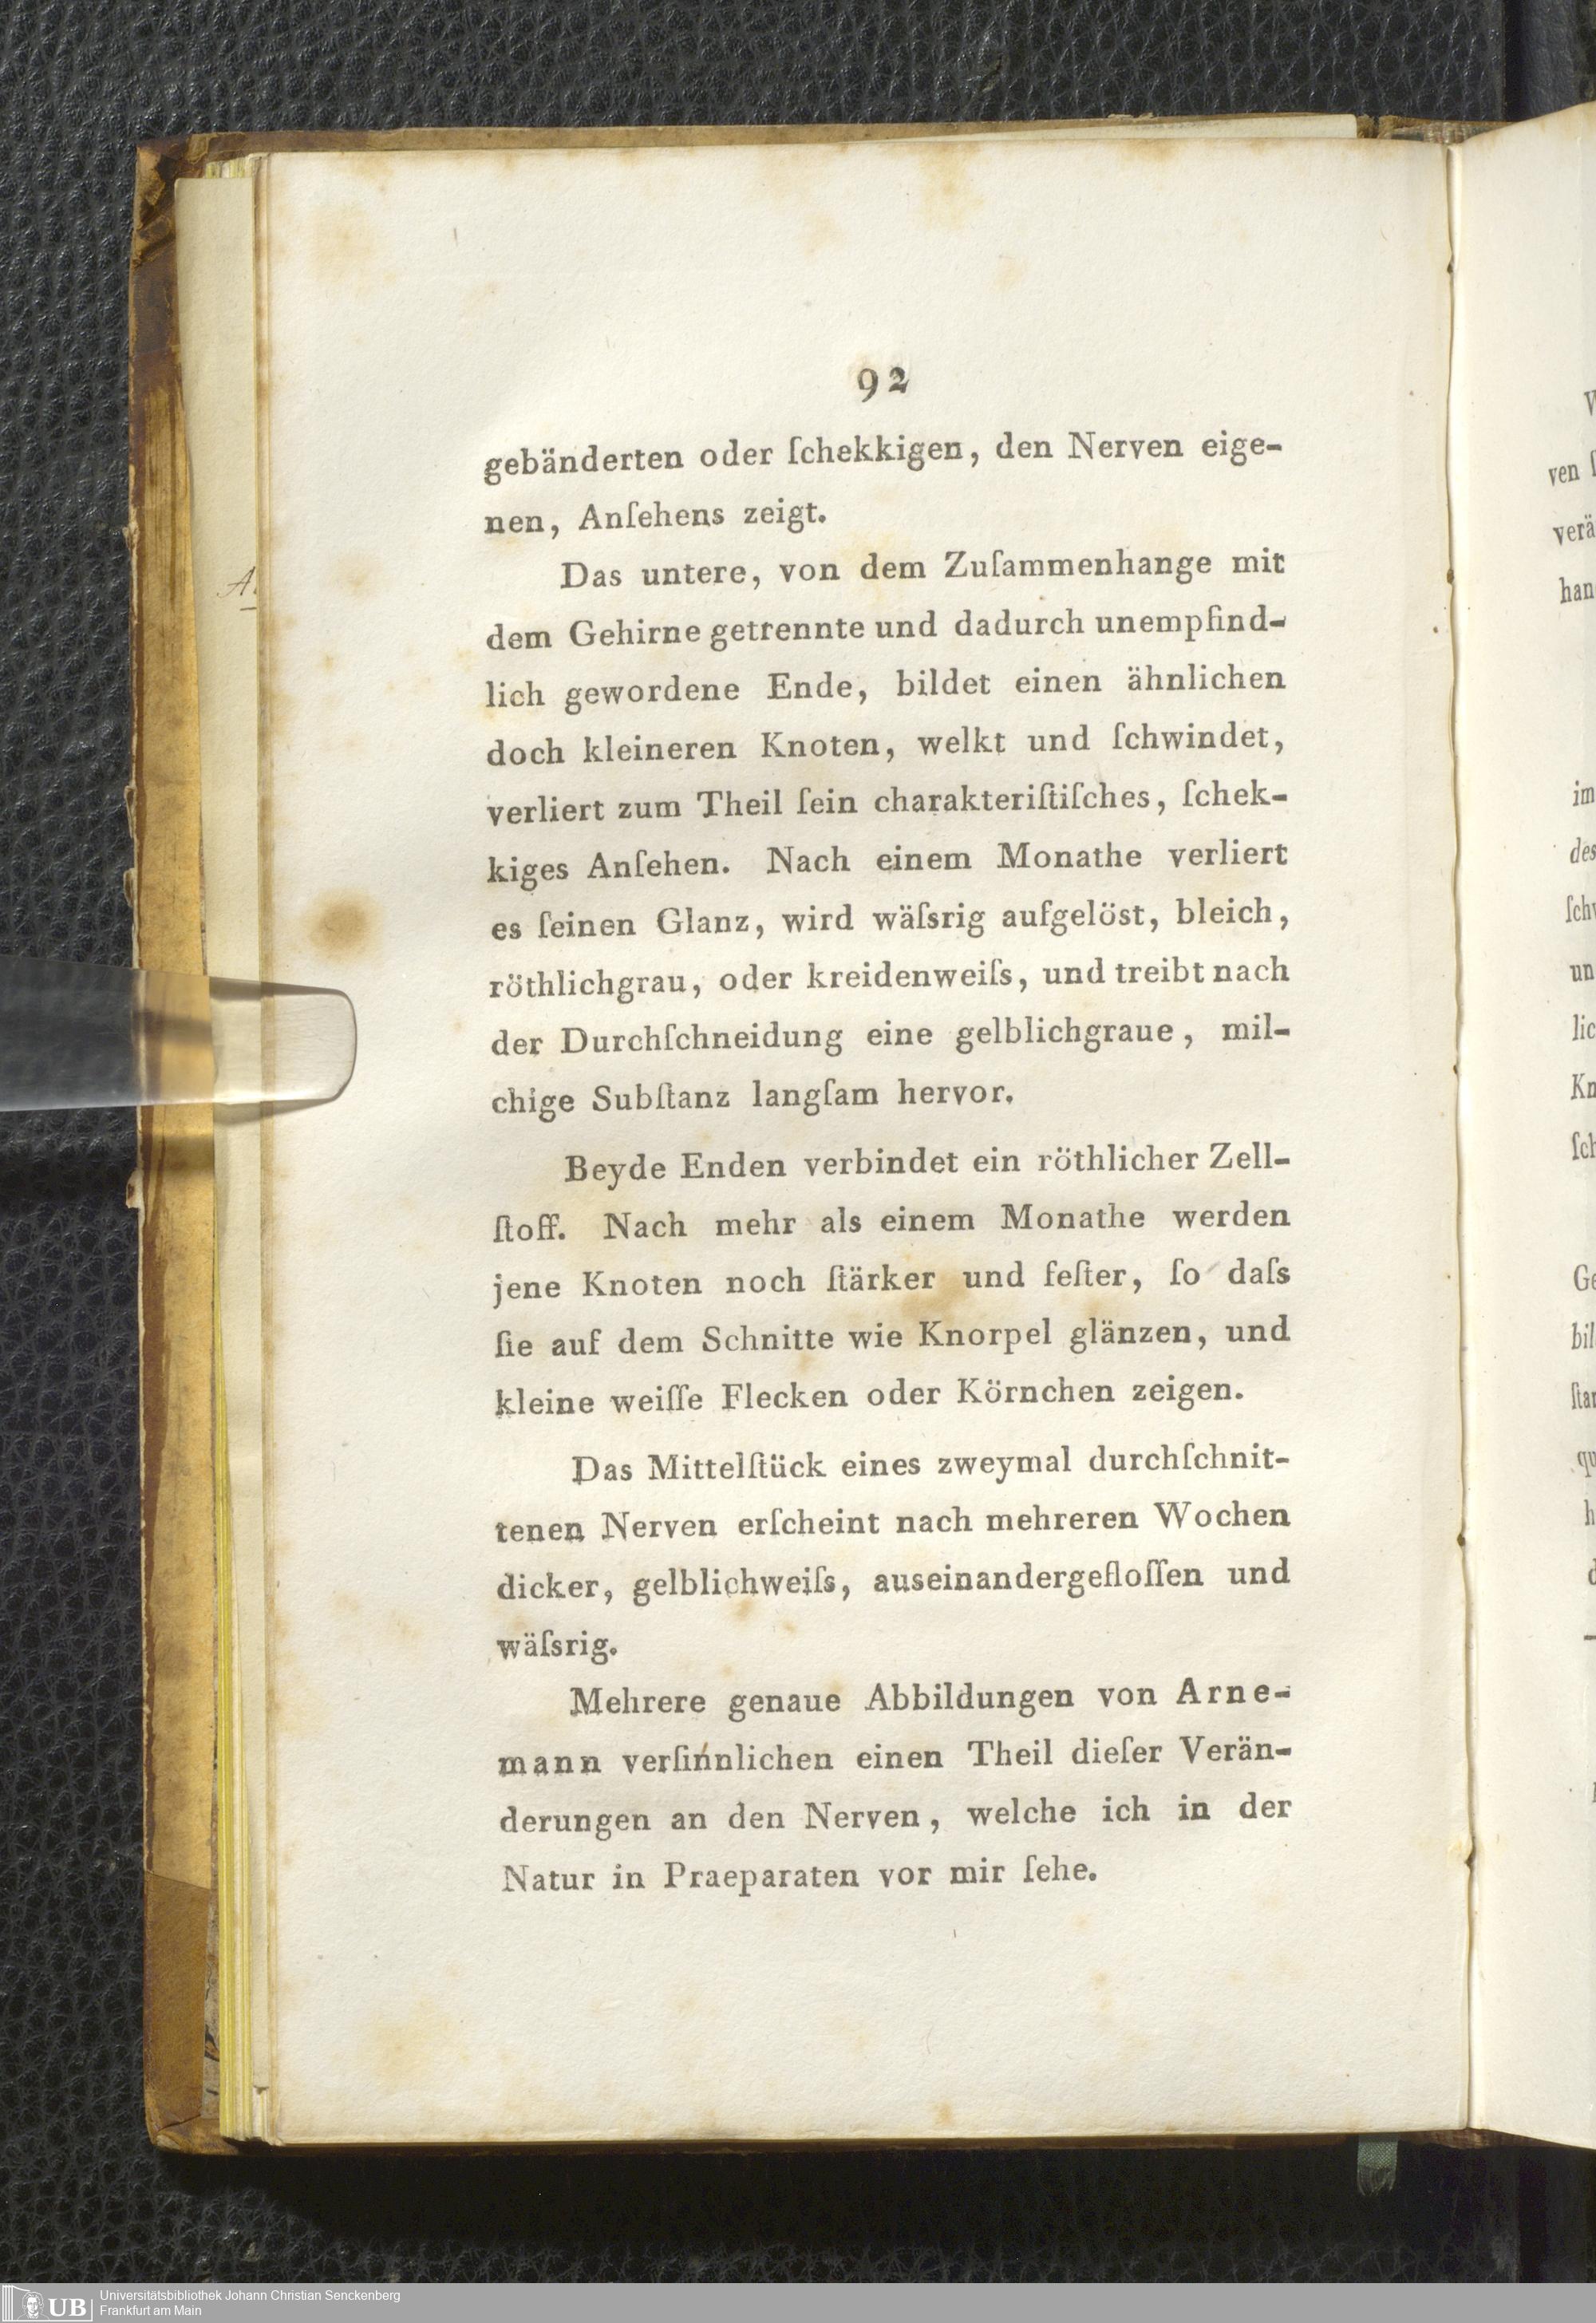 92
gebänderten oder ſchekkigen, den Nerven eige-
nen, Anſehens zeigt.
Das untere, von dem Zuſammenhange mit
dem Gehirne getrennte und dadurch unempfind-
lich gewordene Ende, bildet einen ähnlichen
doch kleineren Knoten, welkt und ſchwindet,
verliert zum Theil ſein charakteriſtiſches, ſchek-
kiges Anſehen. Nach einem Monathe verliert
es ſeinen Glanz, wird wäſsrig aufgelöst, bleich,
röthlichgrau, oder kreidenweiſs, und treibt nach
der Durchſchneidung eine gelblichgraue, mil-
chige Subſtanz langſam hervor.
Beyde Enden verbindet ein röthlicher Zell-
ſtoff. Nach mehr als einem Monathe werden
jene Knoten noch ſtärker und feſter, ſo daſs
ſie auf dem Schnitte wie Knorpel glänzen, und
kleine weiſſe Flecken oder Körnchen zeigen.
Das Mittelſtück eines zweymal durchſchnit-
tenen Nerven erſcheint nach mehreren Wochen
dicker, gelblichweiſs, auseinandergefloſſen und
wäſsrig.
Mehrere genaue Abbildungen von Arne-
mann verſinnlichen einen Theil dieſer Verän-
derungen an den Nerven, welche ich in der
Natur in Praeparaten vor mir ſehe.
ven
verä
han
im
des
un
lic
Kn
ſch
Ge
bil
ſtar
qu
UB
Universitätsbibliothek Johann Christian Senckenberg
Frankfurt am Main